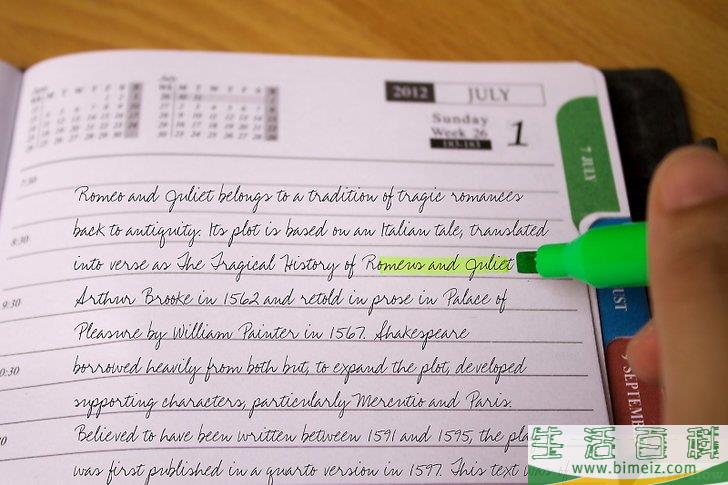 2012 JULY
Sunday
Week 26
183-183
1
July
7 JULY
7:30
8:30
9:30
Romeo and Juliet belongs to a tradition of tragic romances
back to antiquity. Its plot is based on an Italian tale, translated
into verse as The Tragical History of Romeus and Juliet
Arthur Brooke in 1562 and retold in prose in Palace of
Pleasure by William Painter in 1567. Shakespeare
borrowed heavily from both but, to expand the plot, developed
supporting characters, particularly Mercutio and Paris.
Believed to have been written between 1591 and 1595, the
was first published in a quarto version in 1597. This text
SEPTEMB
生活百科
www.bimeiz.com